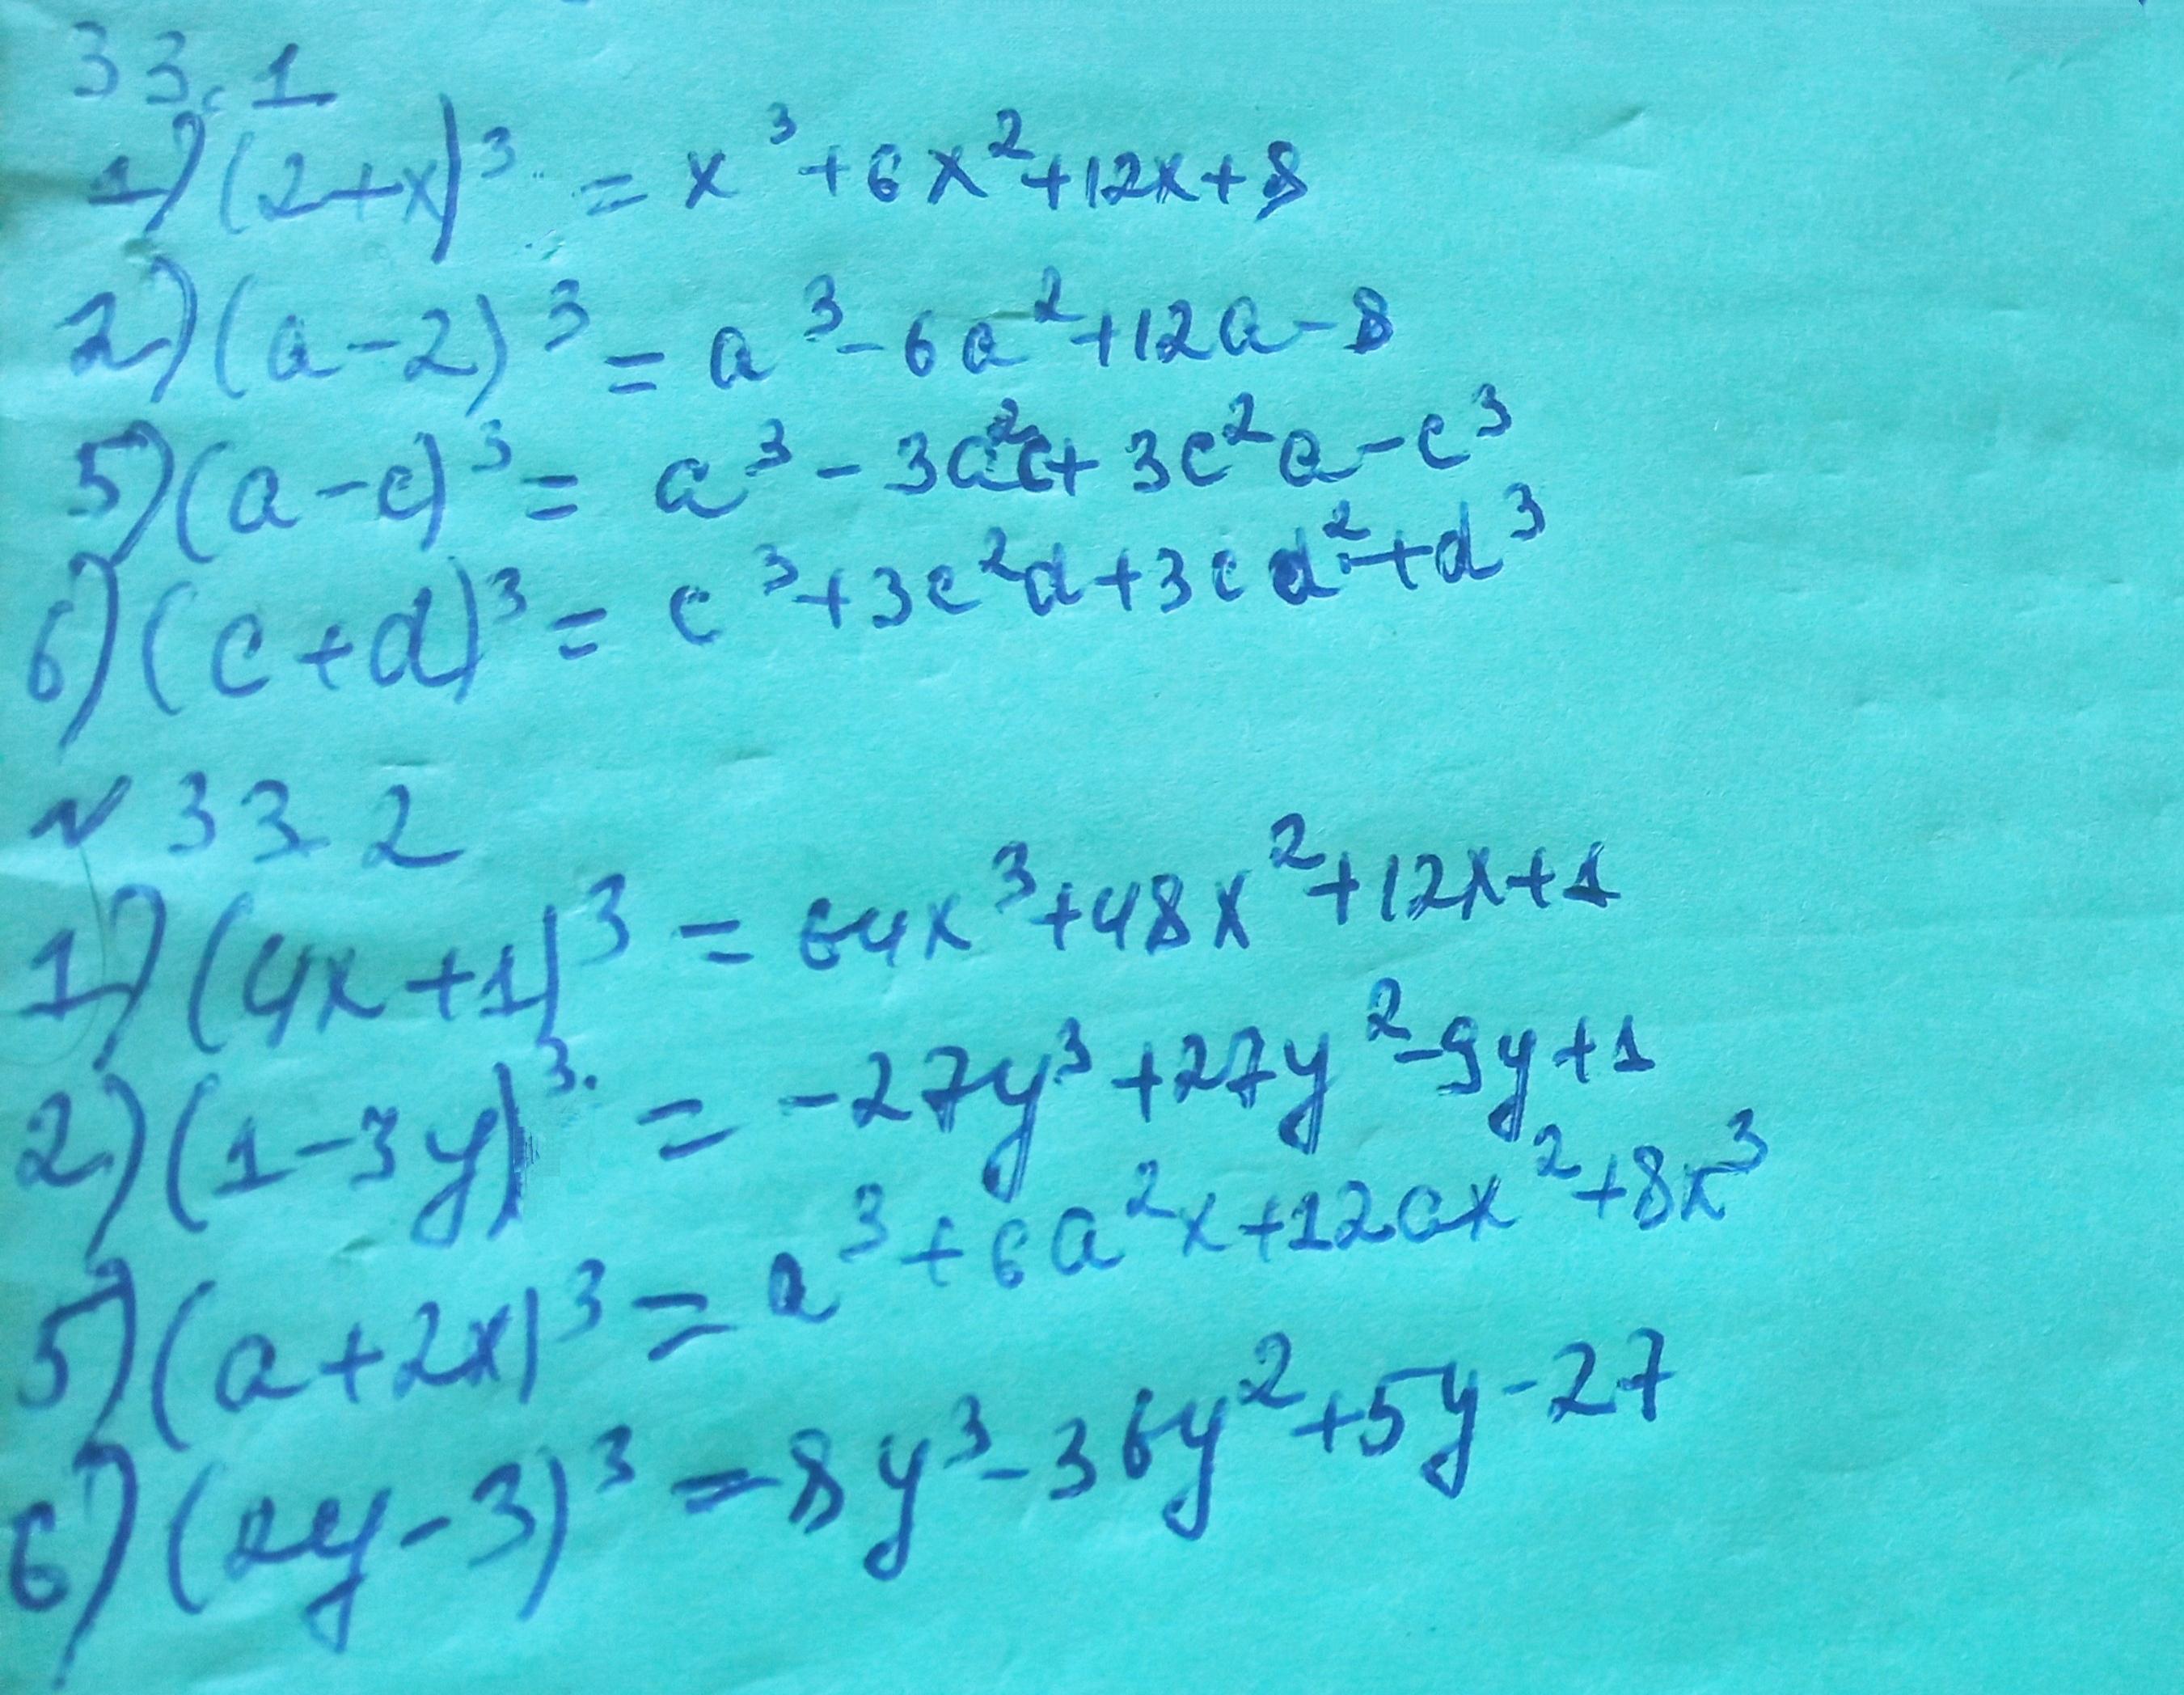 33.1
1) (2+x)³ = x³+6x²+12x+8
2) (a-2)³ = a³-6a²+12a-8
5) (a-c)³ = a³-3a²c+3c²a-c³
6) (c+d)³ = c³+3c²d+3cd²+d³
№ 33.2
1) (4x+1)³ = 64x³+48x²+12x+1
2) (1-3y)³ = -27y³+27y²-9y+1
5) (a+2x)³ = a³+6a²x+12ax²+8x³
6) (2y-3)³ = 8y³-36y²+5y-27